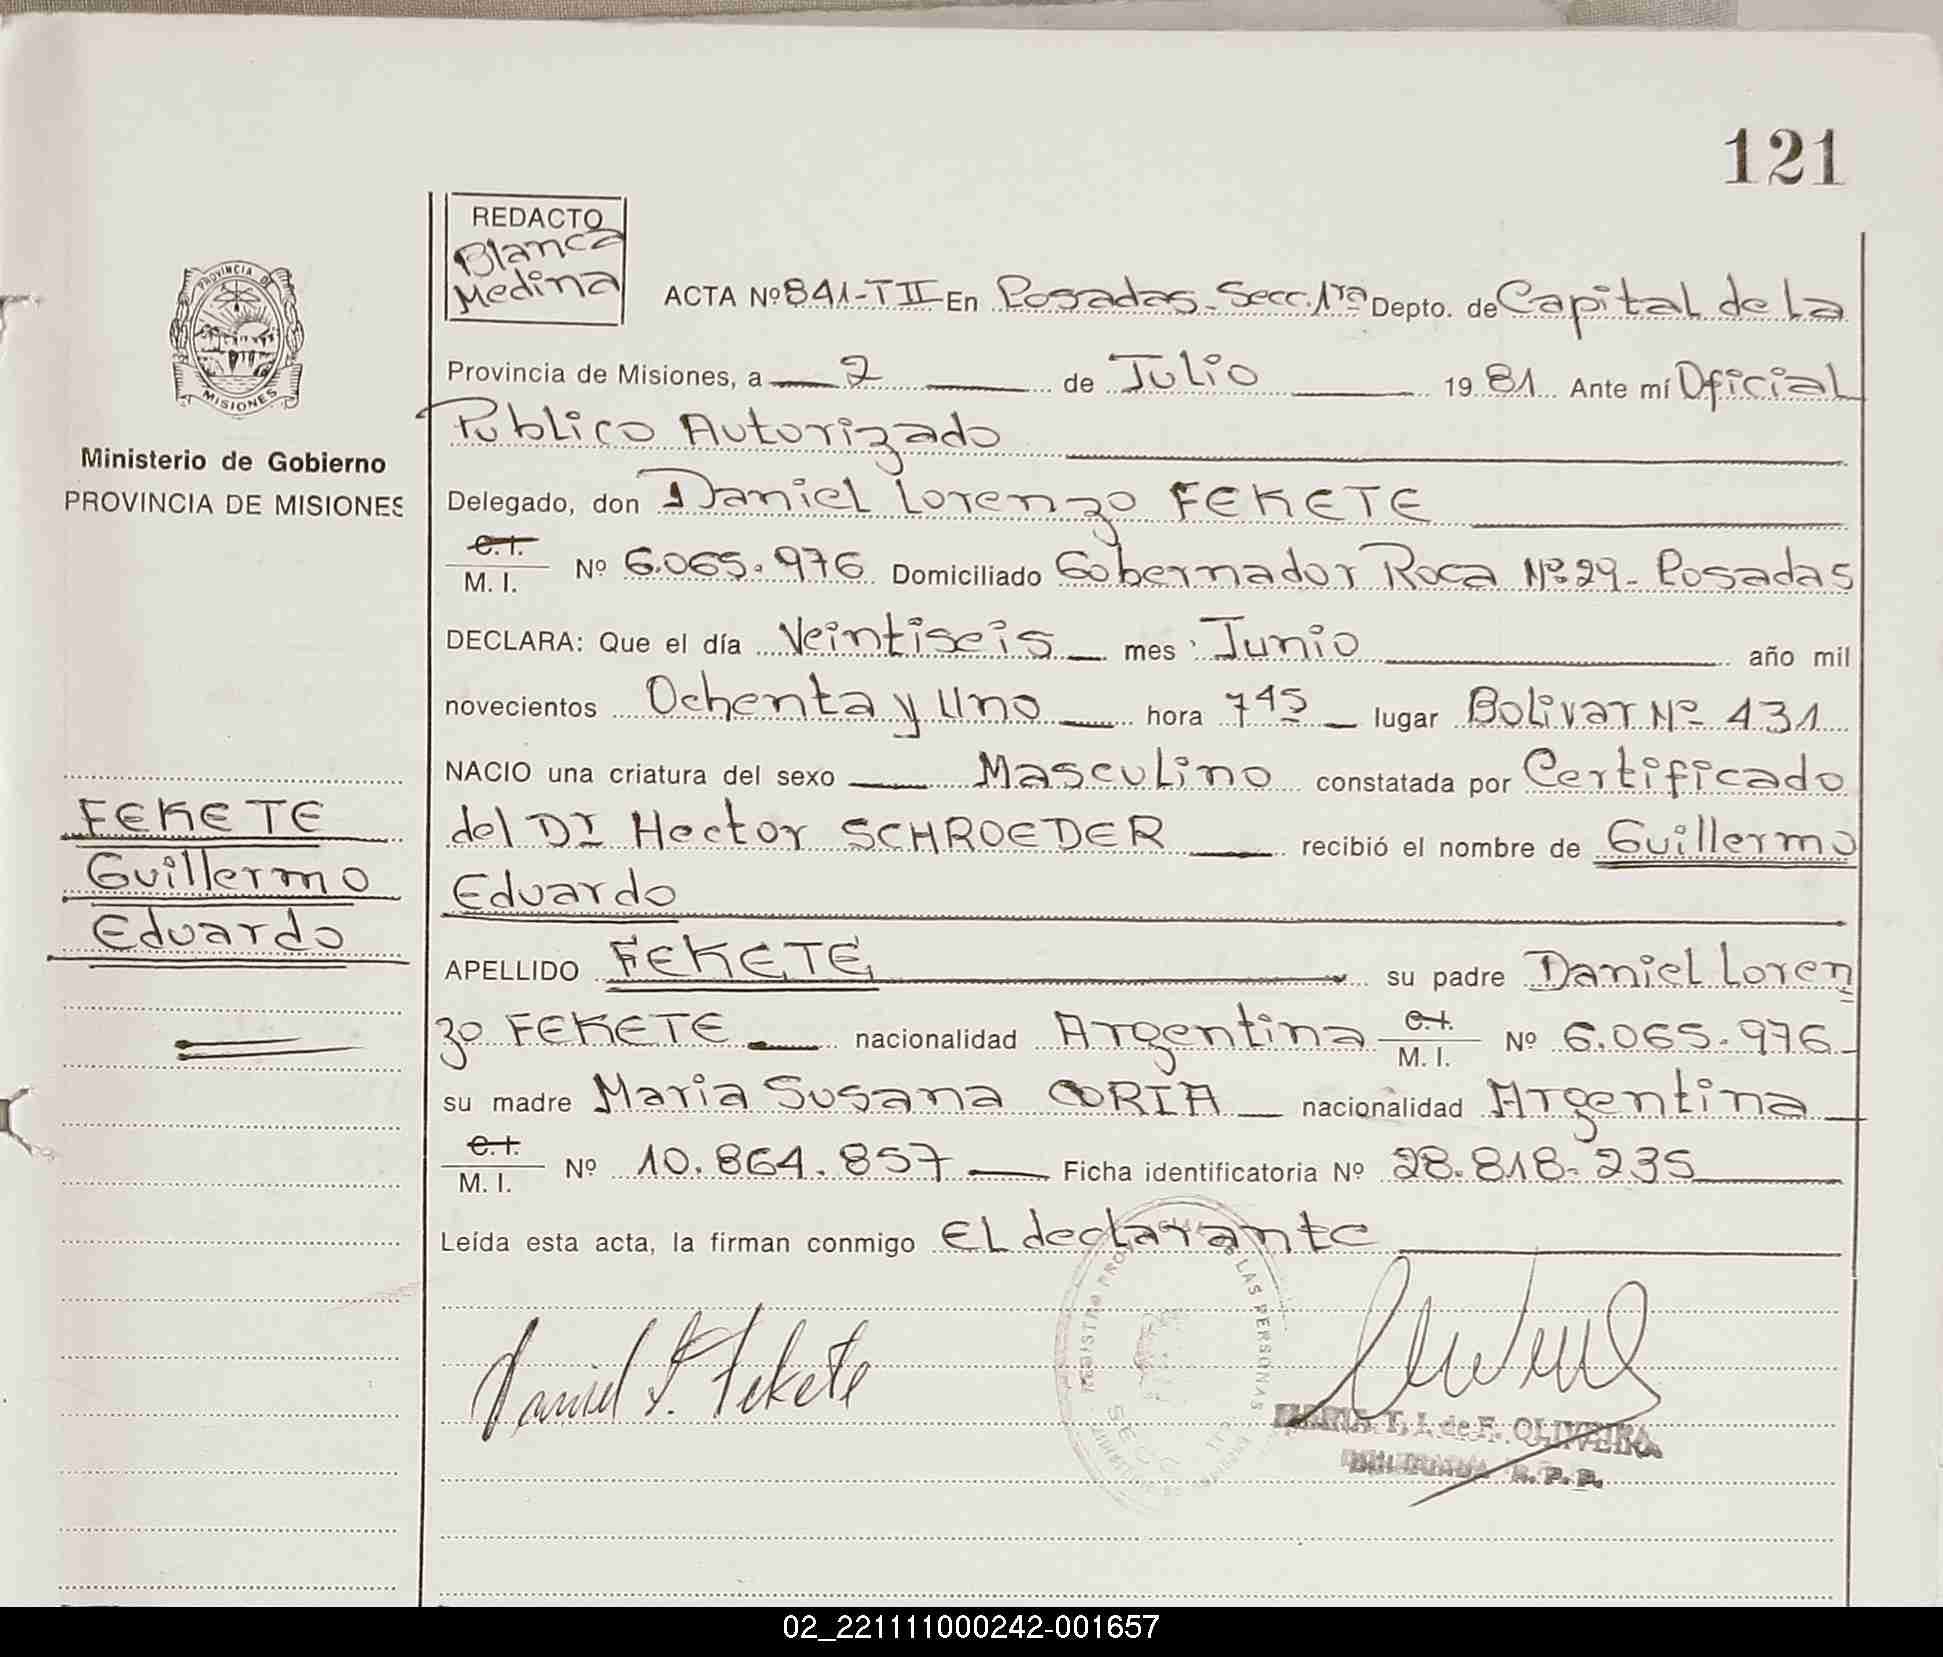 121
REDACTO
Blanca
Medina
PROVINCIA DE
MISIONES
Ministerio de Gobierno
PROVINCIA DE MISIONES
ACTA Nº 841-TII En Posadas-Secc.1ra Depto. de Capital de la
Provincia de Misiones, a 2 de Julio 1981 Ante mí Oficial
Publico Autorizado
Delegado, don Daniel Lorenzo FEKETE
C.I.
M. I. Nº 6.065.976 Domiciliado Gobernador Roca Nº 29- Posadas
DECLARA: Que el día Veintiseis mes Junio año mil
novecientos Ochenta y Uno hora 7 45 lugar Bolivar Nº 431
NACIO una criatura del sexo Masculino constatada por Certificado
del Dr Hector SCHROEDER recibió el nombre de Guillermo
Eduardo
APELLIDO FEKETE su padre Daniel Loren
zo FEKETE nacionalidad Argentina C.I. M. I. Nº 6.065.976
su madre Maria Susana CORIA nacionalidad Argentina
C.I.
M. I. Nº 10.864.857 Ficha identificatoria Nº 28.818.235
Leída esta acta, la firman conmigo El declarante
FEKETE
Guillermo
Eduardo
Daniel L. Fekete
LAS PERSONAS
SECC
MARIA T. I. de F. OLIVEIRA
R. P. P.
02_221111000242-001657